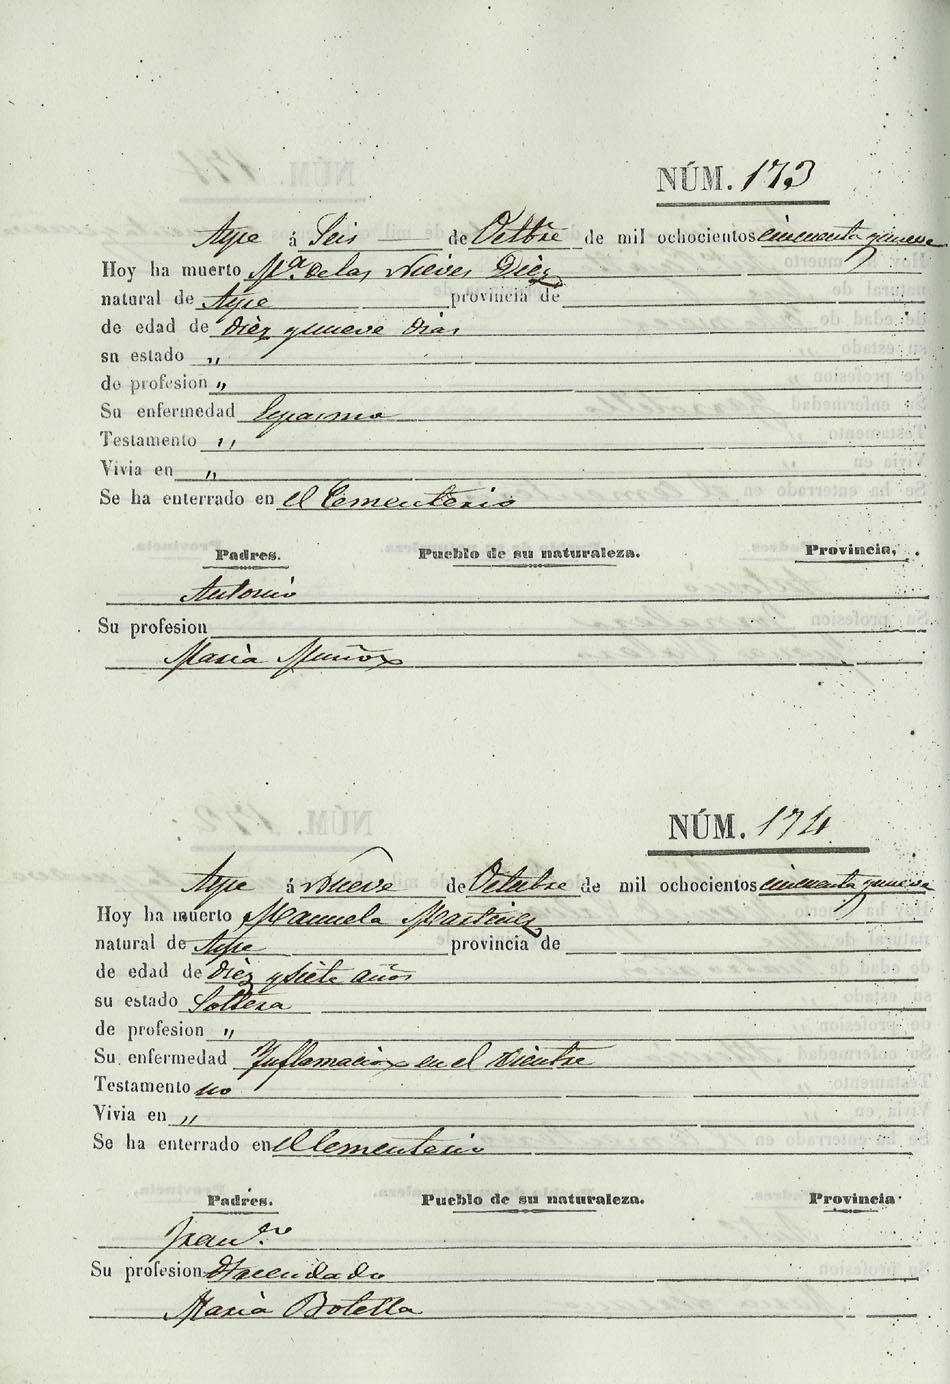 NÚM. 173
Aspe á Seis de Octbre de mil ochocientos cincuenta y nueve
Hoy ha muerto Mª. de las Nieves Diez
natural de Aspe provincia de
de edad de diez y nueve dias
su estado „
de profesion „
Su enfermedad Espasmo
Testamento „
Vivia en „
Se ha enterrado en el Cementerio
Padres. Pueblo de su naturaleza. Provincia.
Antonio
Su profesion
Maria Muñoz
NÚM. 174
Aspe á Nueve de Octubre de mil ochocientos cincuenta y nueve
Hoy ha muerto Manuela Martinez
natural de Aspe provincia de
de edad de diez y siete años
su estado Soltera
de profesion „
Su enfermedad Inflamacion en el vientre
Testamento no
Vivia en „
Se ha enterrado en el Cementerio
Padres. Pueblo de su naturaleza. Provincia
Franco.
Su profesion Hacendado
Maria Botella